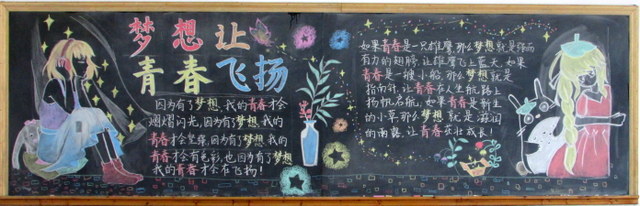 梦想让
青春飞扬
因为有了梦想,我的青春才会
熠熠闪光,因为有了梦想,我的
青春才会坚强,因为有了梦想,我的
青春才会有色彩,也因为有了梦想
我的青春才会在飞扬!
如果青春是一只雄鹰,那么梦想就是强而
有力的翅膀,让雄鹰飞上蓝天,如果
青春是一艘小船,那么梦想就是
指南针,让青春在人生航路上
扬帆启航,如果青春是新生
的小草,那么梦想就是滋润
的雨露,让青春茁壮成长!